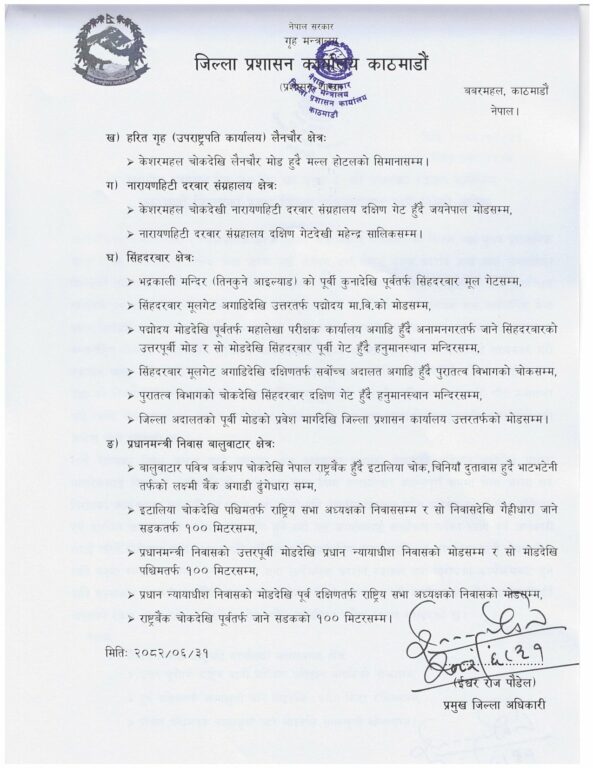 नेपाल सरकार
गृह मन्त्रालय
जिल्ला प्रशासन कार्यालय काठमाडौं
(प्रशासन शाखा)
नेपाल सरकार
गृह मन्त्रालय
जिल्ला प्रशासन कार्यालय
काठमाडौं
बबरमहल, काठमाडौं
नेपाल।
ख) हरित गृह (उपराष्ट्रपति कार्यालय) लैनचौर क्षेत्रः
➢ केशरमहल चोकदेखि लैनचौर मोड हुदै मल्ल होटलको सिमानासम्म।
ग) नारायणहिटी दरवार संग्रहालय क्षेत्रः
➢ केशरमहल चोकदेखी नारायणहिटी दरवार संग्रहालय दक्षिण गेट हुँदै जयनेपाल मोडसम्म,
➢ नारायणहिटी दरवार संग्रहालय दक्षिण गेटदेखी महेन्द्र सालिकसम्म।
घ) सिंहदरवार क्षेत्रः
➢ भद्रकाली मन्दिर (तिनकुने आइल्याड) को पूर्वी कुनादेखि पूर्वतर्फ सिंहदरवार मूल गेटसम्म,
➢ सिंहदरवार मूलगेट अगाडिदेखि उत्तरतर्फ पद्मोदय मा.वि.को मोडसम्म,
➢ पद्मोदय मोडदेखि पूर्वतर्फ महालेखा परीक्षक कार्यालय अगाडि हुँदै अनामनगरतर्फ जाने सिंहदरवारको
उत्तरपूर्वी मोड र सो मोडदेखि सिंहदरवार पूर्वी गेट हुँदै हनुमानस्थान मन्दिरसम्म,
➢ सिंहदरवार मूलगेट अगाडिदेखि दक्षिणतर्फ सर्वोच्च अदालत अगाडि हुँदै पुरातत्व विभागको चोकसम्म,
➢ पुरातत्व विभागको चोकदेखि सिंहदरवार दक्षिण गेट हुँदै हनुमानस्थान मन्दिरसम्म,
➢ जिल्ला अदालतको पूर्वी मोडको प्रवेश मार्गदेखि जिल्ला प्रशासन कार्यालय उत्तरतर्फको मोडसम्म।
ङ) प्रधानमन्त्री निवास बालुवाटार क्षेत्रः
➢ बालुवाटार पवित्र वर्कशप चोकदेखि नेपाल राष्ट्रबैंक हुँदै इटालिया चोक,चिनियाँ दुतावास हुदै भाटभटेनी
तर्फको लक्ष्मी बैंक अगाडी ढुंगेधारा सम्म,
➢ इटालिया चोकदेखि पश्चिमतर्फ राष्ट्रिय सभा अध्यक्षको निवाससम्म र सो निवासदेखि गैह्रीधारा जाने
सडकतर्फ १०० मिटरसम्म,
➢ प्रधानमन्त्री निवासको उत्तरपूर्वी मोडदेखि प्रधान न्यायाधीश निवासको मोडसम्म र सो मोडदेखि
पश्चिमतर्फ १०० मिटरसम्म,
➢ प्रधान न्यायाधीश निवासको मोडदेखि पूर्व दक्षिणतर्फ राष्ट्रिय सभा अध्यक्षको निवासको मोडसम्म,
➢ राष्ट्रबैंक चोकदेखि पूर्वतर्फ जाने सडकको १०० मिटरसम्म।
मितिः २०८२/०६/३१
(ईश्वर राज पौडेल)
प्रमुख जिल्ला अधिकारी